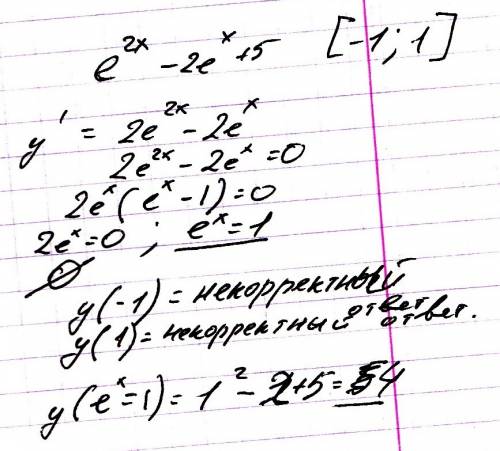 e^2x - 2e^x + 5 [-1; 1]
y' = 2e^2x - 2e^x
2e^2x - 2e^x = 0
2e^x(e^x - 1) = 0
2e^x = 0 ; e^x = 1
∅
y(-1) = некорректный ответ
y(1) = некорректный ответ.
y(e^x = 1) = 1^2 - 2 + 5 = 4